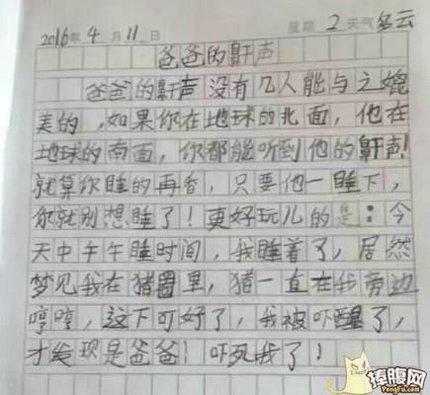 2016年4月11日 星期2天气多云
爸爸的鼾声
爸爸的鼾声没有几人能与之媲
美的，如果你在地球的北面，他在
地球的南面，你都能听到他的鼾声！
就算你睡的再香，只要他一睡下，
你就别想睡了！更好玩儿的是：今
天中午午睡时间，我睡着了，居然
梦见我在猪圈里，猪一直在我旁边
哼哼，这下可好了，我被吓醒了，
才发现是爸爸！吓死我了！
捧腹网
PengFu.com